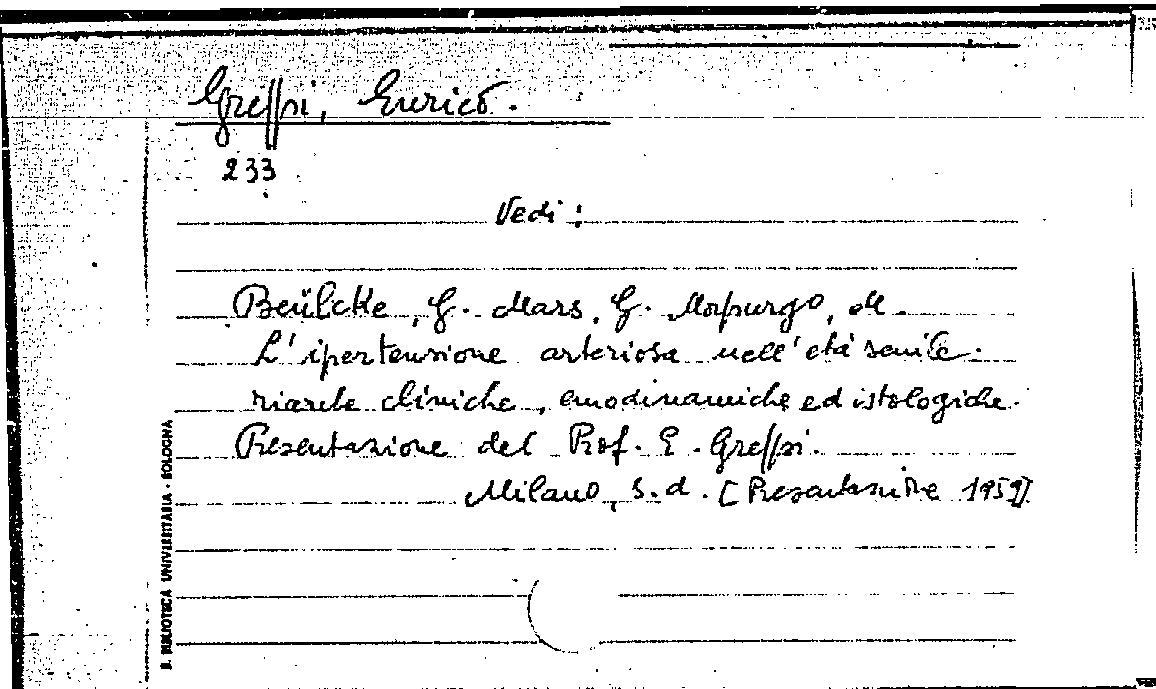 Greppi, Enrico.
233
Vedi:
Beülcke, G. Mars, G. Morpurgo, M.
L'ipertensione arteriosa nell'età senile.
cliniche, emodinamiche ed istologiche.
Presentazione del Prof. E. Greppi.
Milano, s.d. [Presentazione 1959]
B. BIBLIOTECA UNIVERSITARIA - BOLOGNA